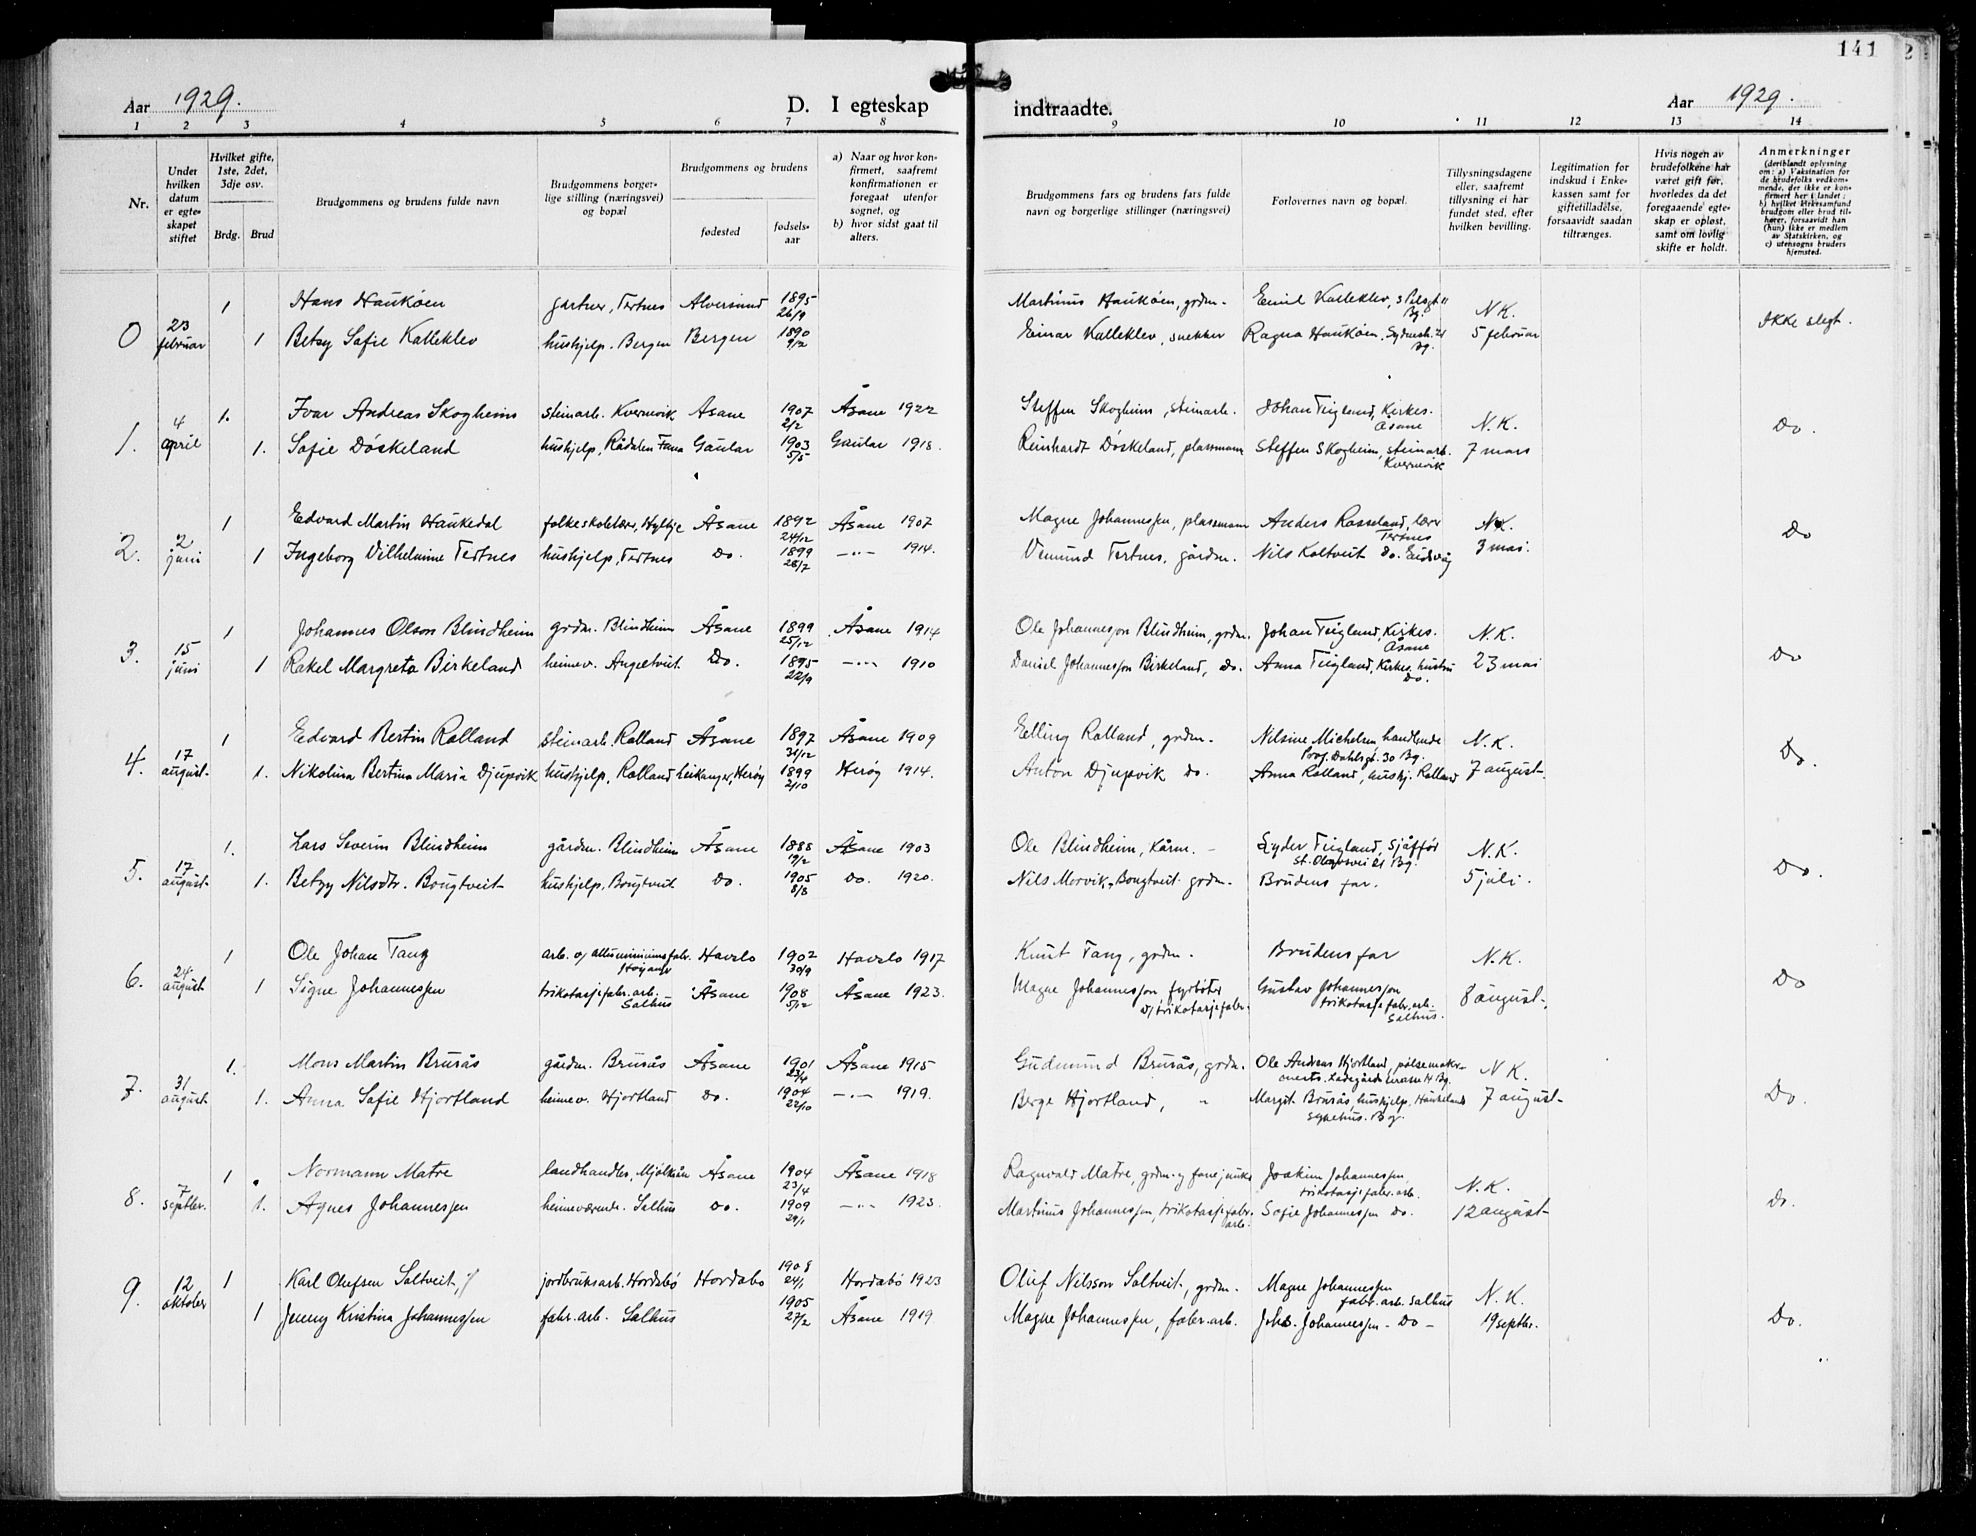 141
2
Aar 1929.
D. I egteskap
indtraadte.
Aar 1929.
1 2 3 4 5 6 7 8 9 10 11 12 13 14
Nr.
Under hvilken datum er egteskapet stiftet
Hvilket gifte, 1ste, 2det, 3dje osv.
Brdg. Brud
Brudgommens og brudens fulde navn
Brudgommens borgerlige stilling (næringsvei) og bopæl
Brudgommens og brudens
fødested
fødselsaar
a) Naar og hvor konfirmert, saafremt konfirmationen er foregaat utenfor sognet, og
b) hvor sidst gaat til alters.
Brudgommens fars og brudens fars fulde navn og borgerlige stillinger (næringsvei)
Forlovernes navn og bopæl.
Tillysningsdagene eller, saafremt tillysning ei har fundet sted, efter hvilken bevilling.
Legitimation for indskud i Enkekassen samt for giftetilladelse, forsaavidt saadan tiltrænges.
Hvis nogen av brudefolkene har været gift før, hvorledes da det foregaaende egteskap er opløst, samt om lovlig skifte er holdt.
Anmerkninger
(deriblandt oplysning om: a) Vaksination for de brudefolks vedkommende, der ikke er konfirmert her i landet; b) hvilket kirkesamfund brudgom eller brud tilhører, forsaavidt han (hun) ikke er medlem av Statskirken, og c) utensogns bruders hjemsted.
0 23 februar 1 Hans Haukøen gartner, Tertnes Alversund 1895 26/9 Martinus Haukøen, grdm. Emil Kalleklev, Bg. N.K. Ikke slegt.
1 Betsy Sofie Kalleklev hushjelp. Bergen Bergen 1890 9/2 Einar Kalleklev, snekker Ragna Haukøen, Bg. 5 februar
1. 4 april 1. Ivar Andreas Skogheim steinarb. Kvernvik Åsane 1907 2/2 Åsane 1922 Steffen Skogheim, steinarb. Johan Teigland, Kirkes. Åsane N.K. Do.
1. Sofie Döskeland hushjelp, Rådalen Fana Gaular 1903 5/5 Gaular 1918. Reinhardt Döskeland, plassmann Steffen Skogheim, steinarb. Kvernvik 7 mars
2. 2 juni 1 Edvard Martin Haukedal folkeskolelær, Hylkje Åsane 1892 24/12 Åsane 1907 Magne Johannessen, plassmann Anders Rosseland, lærer Tertnes N.K. Do
1 Ingeborg Vilhelmine Tertnes hushjelp, Tertnes Do. 1899 28/7 —"— 1914. Vemund Tertnes, gårdm. Nils Koltveit do. Eidsvåg 3 mai.
3. 15 juni 1 Johannes Olson Blindheim grdm. Blindheim Åsane 1899 25/12 Åsane 1914 Ole Johannesson Blindheim, grdm. Johan Teigland, Kirkes. Åsane N.K. Do
1 Rakel Margreta Birkeland heimev. Angeltveit Do. 1895 22/9 —"— 1910 Daniel Johannesson Birkeland, do. Anna Teigland, Kirkes. hustru Do. 23 mai
4. 17 august. 1 Edvard Bertin Rolland steinarb. Rolland Åsane 1897 31/12 Åsane 1909 Elling Rolland, grdm. Nilsine Michelsen, handlende Prof. Dahlsgt. 30 Bg. N.K. Do.
1. Nikolina Bertina Maria Djupvik hushjelp, Rolland Leikanger, Herøy 1899 2/10 Herøy 1914. Anton Djupvik do. Anna Rolland, hushj. Rolland 7 august.
5. 17 august. 1. Lars Severin Blindheim gårdm. Blindheim Åsane 1888 19/2 Åsane 1903 Ole Blindheim, Kårm. Lyder Teigland, Sjåffør St. Olavsvei Bg. N.K. Do.
1. Betzy Nilsdtr. Bougtveit hushjelp, Bougtveit do. 1905 8/8 do. 1920. Nils Morvik, Bougtveit grdm. Brudens far. 5 juli.
6. 24 august. 1 Ole Johan Tang arb. v/ alluminiumsfabr. Høyanger Havslo 1902 30/9 Havslo 1917 Knut Tang, grdm. Brudens far N.K. Do
1 Signe Johannessen trikotasjefabr. arb. Salhus Åsane 1908 5/12 Åsane 1923. Magne Johannessen fyrbøter v/ trikotasjefabr. Gustav Johannessen trikotasjefabr. arb. Salhus. 8 august.
7. 31 august. 1. Mons Martin Brurås gårdm. Brurås Åsane 1901 23/4 Åsane 1915 Gudmund Brurås, grdm. Ole Andreas Hjortland, pølsemaker Ladegårds terasse 14 Bg. N K. Do.
1. Anna Sofie Hjortland heimev. Hjortland Do. 1904 22/10 —"— 1919. Berge Hjortland, " Margit Brurås, hushjelp, Haukelands sykehus. Bg. 7 august
8. 7 septbr. 1 Normann Matre landhandler, Mjølkeån Åsane 1904 23/4 Åsane 1918 Ragnvald Matre, grdm. og fanejunker Joakim Johannessen, trikotasjefabr. arb. N.K. do.
1. Agnes Johannessen heimeværende. Salhus Do. 1909 29/1 —"— 1923. Martinus Johannessen, trikotasjefabr. arb. Sofie Johannessen do. 12 august
9. 12 oktober 1 Karl Olufsen Saltveit jordbruksarb. Hordabø Hordabø 1908 24/1 Hordabø 1923 Oluf Nilsson Saltveit, grdm. Magne Johannessen fabr. arb. Salhus N.K.
1 Jenny Kristina Johannessen fabr. arb. Salhus 1905 27/2 Åsane 1919. Magne Johannessen, fabr. arb. Johs. Johannessen - Do - 19 septbr. Do.